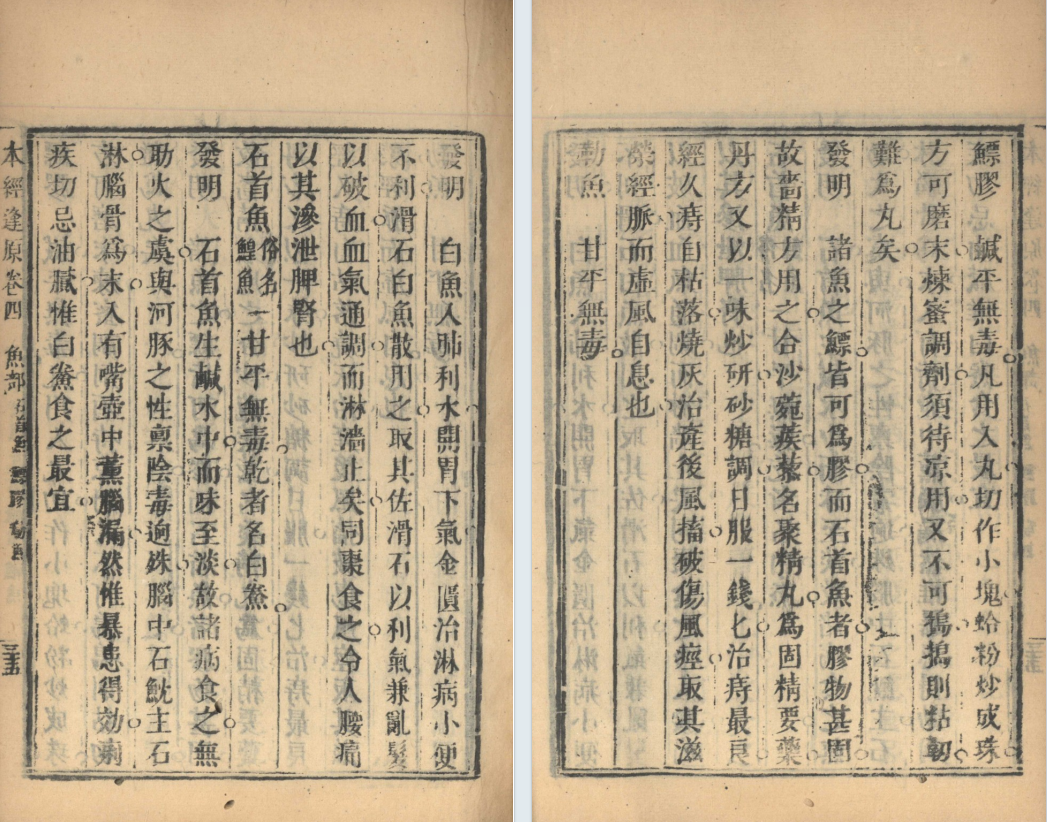 發明　白魚入肺利水開胃下氣金匱治淋病小便
不利滑石白魚散用之取其佐滑石以利氣兼亂髮
以破血血氣通調而淋濇止矣同棗食之令人腰痛
以其滲泄脾腎也
石首魚俗名鰉魚一甘平無毒乾者名白鮝
發明　石首魚生鹹水中而味至淡故諸病食之無
助火之虞與河豚之性稟陰毒逈殊腦中石魫主石
淋腦骨爲末入有嘴壺中薰腦漏然惟暴患得効痢
疾切忌油膩惟白鮝食之最宜
本經逢原卷四　魚部
鰾膠　鹹平無毒凡用入丸切作小塊蛤粉炒成珠
方可磨末煉蜜調劑須待凉用又不可搗搗則粘韌
難爲丸矣
發明　諸魚之鰾皆可爲膠而石首魚者膠物甚固
故嗇精方用之合沙菀蒺藜名聚精丸爲固精要藥
丹方又以一味炒研砂糖調日服一錢匕治痔最良
經久痔自枯落燒灰治產後風搐破傷風痙取其滋
榮經脈而虛風自息也
勒魚　甘平無毒